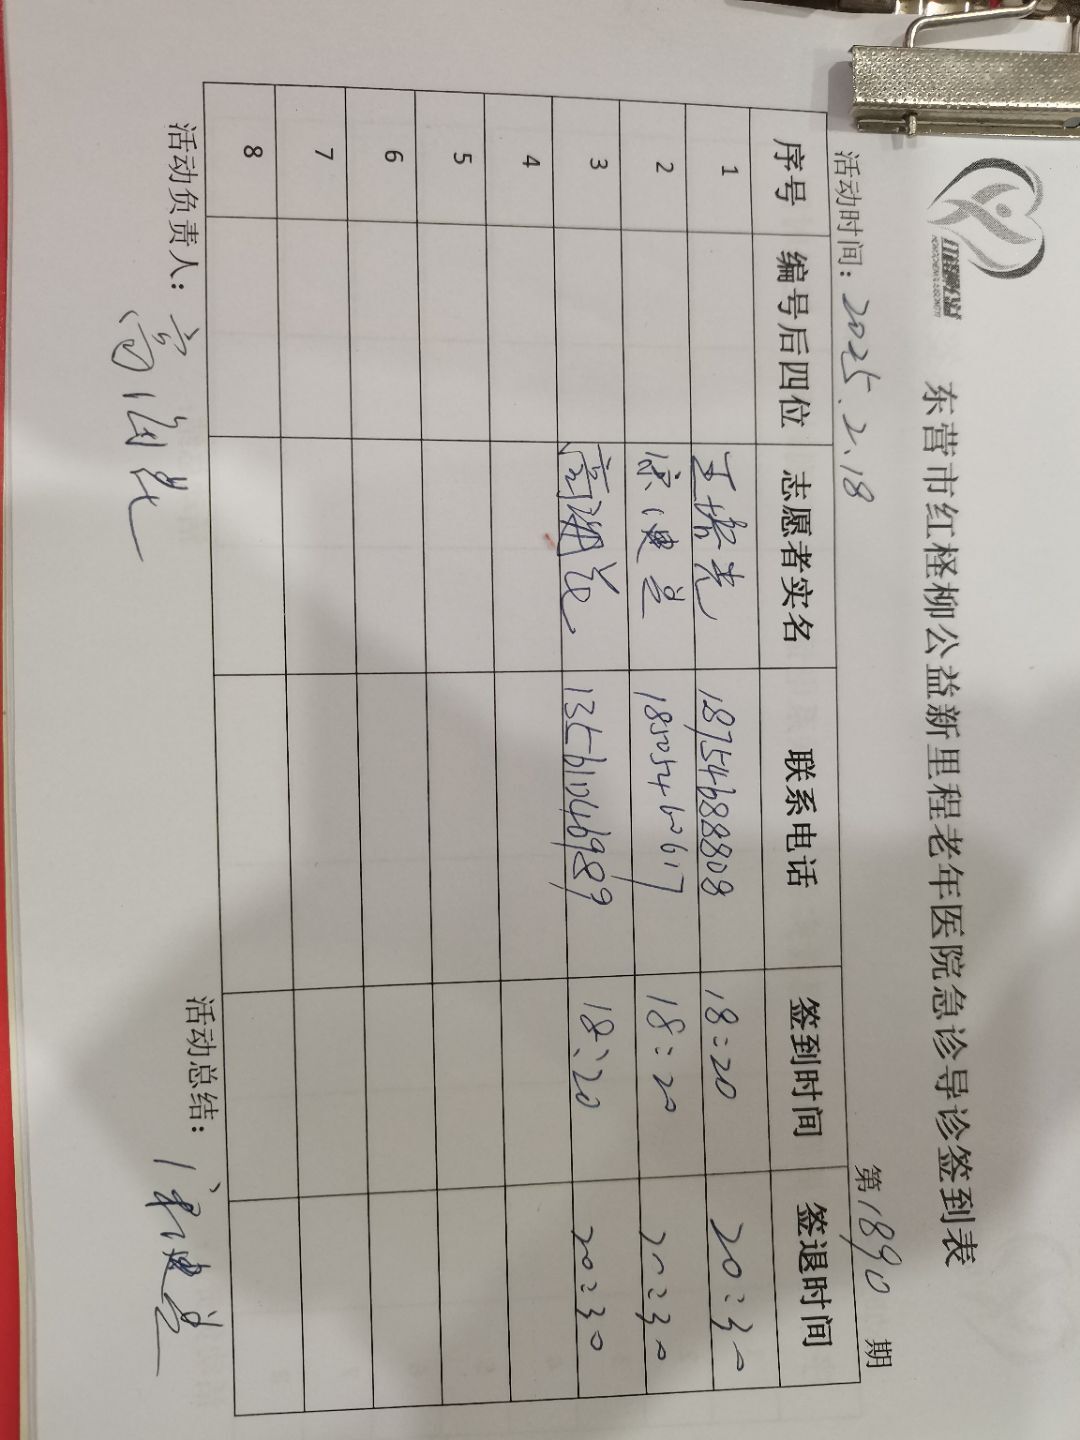 东营市红柽柳公益新里程老年医院急诊导诊签到表
活动时间：2025.2.18 第1890期
序号 编号后四位 志愿者实名 联系电话 签到时间 签退时间
1 18754688808 18:20 20:30
2 18505460617 18:20 20:30
3 13561046989 18:20 20:30
4
5
6
7
8
活动负责人： 活动总结：